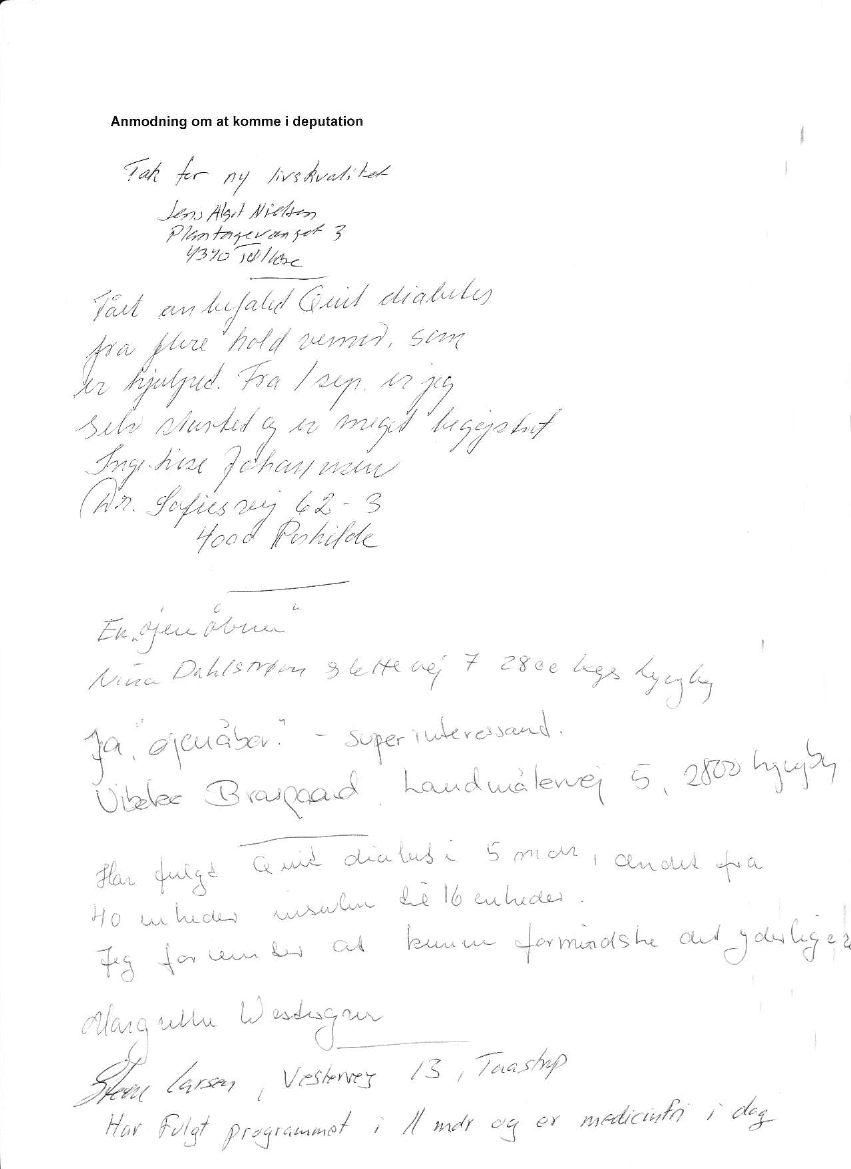 Anmodning om at komme i deputation
Tak for ny livskvalitet
Jens Nielsen
Plantagevænget 3
4340 Tølløse
Fået anbefalet Quit diabetes
fra flere hold venner, som
er hjulpet. Fra 1 sep. er jeg
selv startet og er meget begejstret
Inge-Lise
Dr. Sofiesvej 62 - 3
4000 Roskilde
En "øjenåbner"
Nina Dahlstrøm Slettevej 7 2800 kgs Lyngby
Ja, "øjenåbner" - superinteressand.
Vibeke Landmålervej 5, 2800 Lyngby
Har fulgt Quit diabetes i 5 mdr, ændret fra
40 enheder insulin til 16 enheder.
Jeg forventer at kunne formindske det yderligere
Margrethe
Steen Larsen, Vestervej 13, Taastrup
Har Fulgt programmet i 11 mdr og er medicinfri i dag